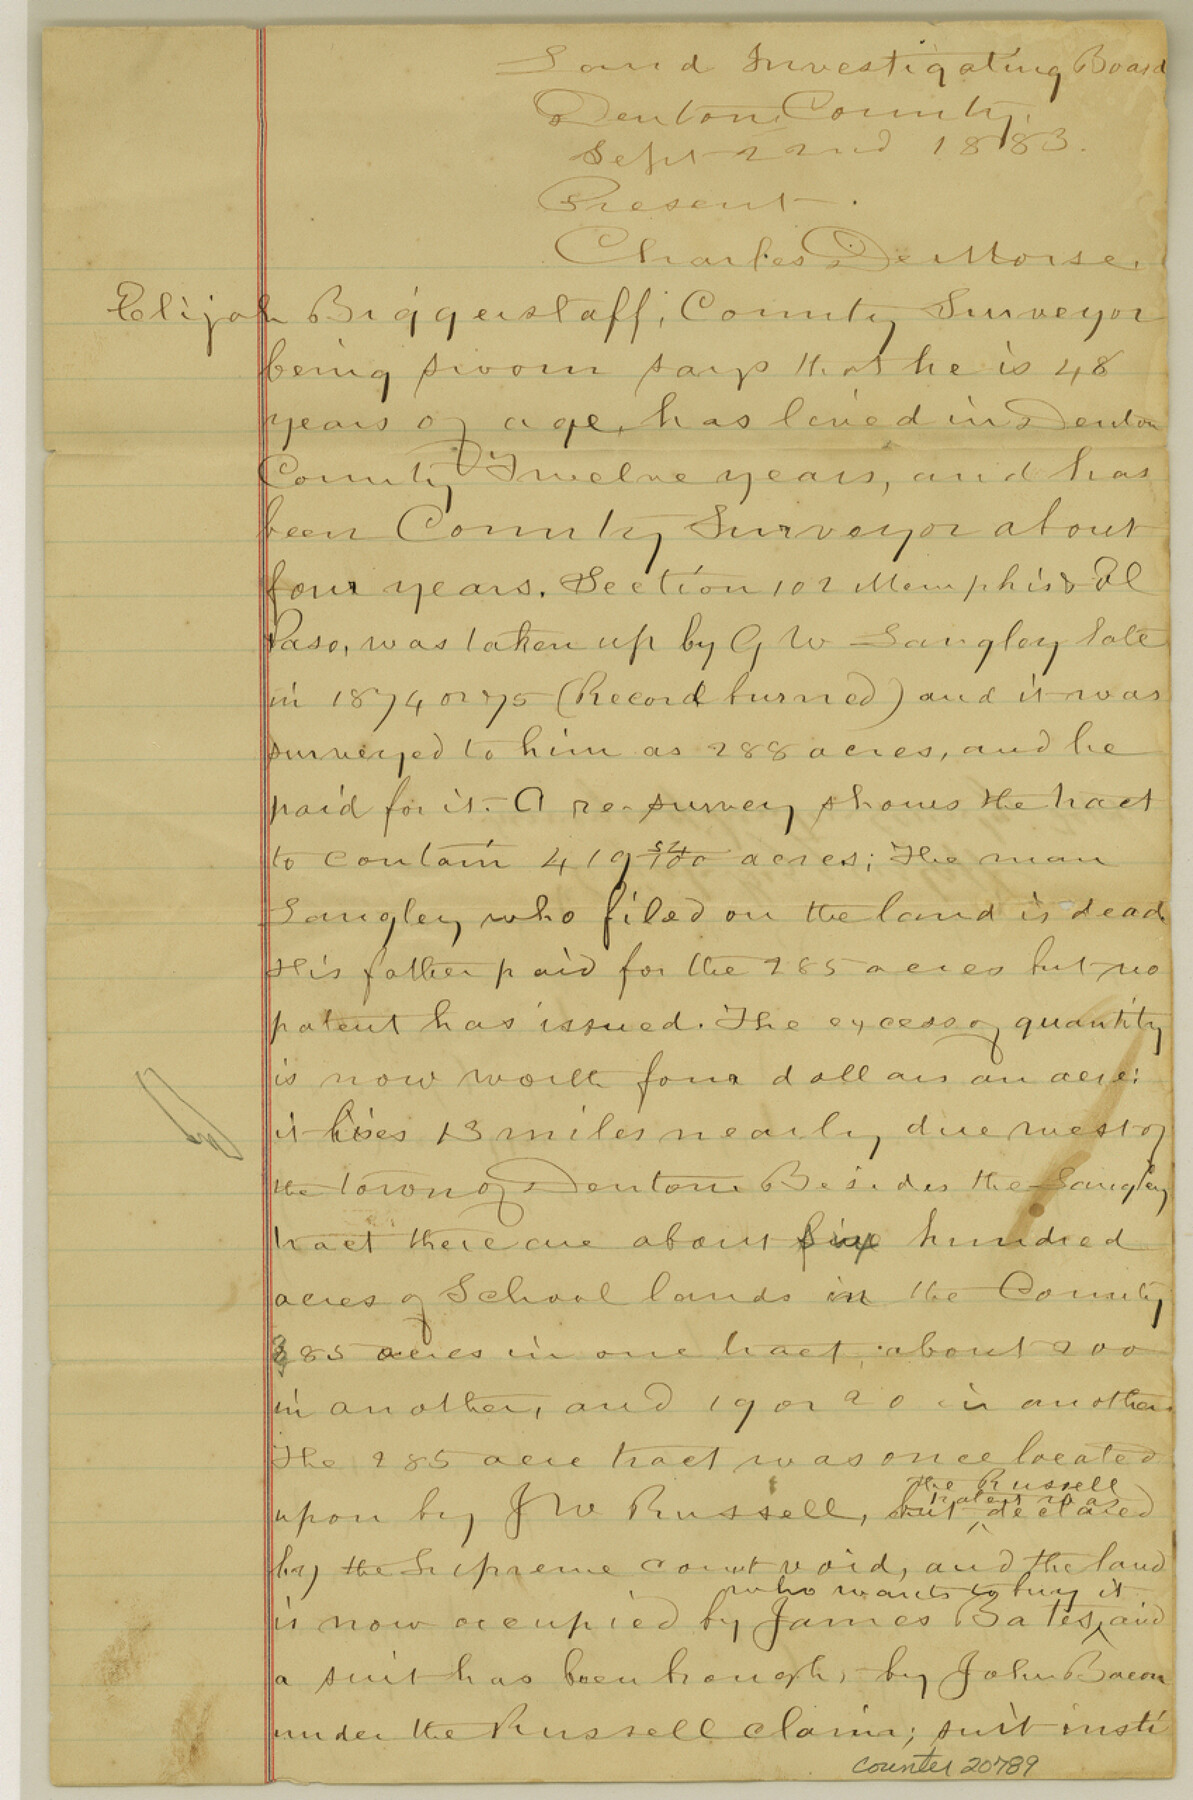 Land Investigating Board
Denton County,
Sept 22nd 1883.
Present.
Charles De Morse.
Elijah Biggerstaff, County Surveyor
being sworn says that he is 48
years of age, has lived in Denton
County Twelve years, and has
been County Surveyor about
four years. Section 102 Memphis & El
Paso, was taken up by G W Langley late
in 1874 or 75 (Record burned) and it was
surveyed to him as 288 acres, and he
paid for it. A re-survey shows the tract
to contain 419 /100 acres; The man
Langley who filed on the land is dead
His father paid for the 285 acres but no
patent has issued. The excess of quantity
is now worth four dollars an acre:
it lies 13 miles nearly due west of
the town of Denton Besides the Langley
tract there are about six hundred
acres of School lands in the County
385 acres in one tract, about 200
in another, and 19 or 20 in another.
The 285 acre tract was once located
the Russell
patent was
upon by J W Russell, but declared
by the Supreme court void, and the land
who wants to buy it
is now occupied by James Bates, and
a suit has been brought by John Bacon
under the Russell claim; suit insti
Counter 20789